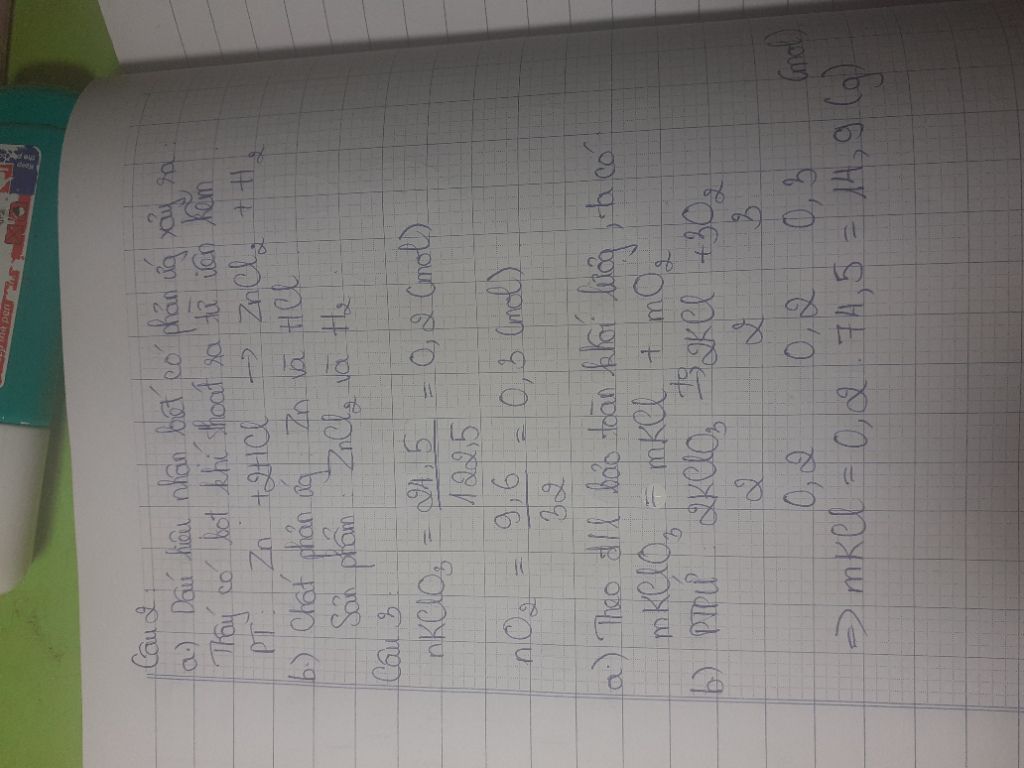 Câu 2:
a.) Dấu hiệu nhận biết có phản ứg xảy ra
Thấy có bọt khí thoát ra từ viên kẽm
PT Zn + 2HCl → ZnCl2 + H2
b.) Chất phản ứg Zn và HCl
Sản phẩm ZnCl2 và H2
Câu 3:
nKClO3 = 24,5 / 122,5 = 0,2 (mol)
nO2 = 9,6 / 32 = 0,3 (mol)
a.) Theo đ/l bảo toàn khối lượg, ta có
mKClO3 = mKCl + mO2
b.) PTHH 2KClO3 to→ 2KCl + 3O2
2 2 3
0,2 0,2 0,3 (mol)
=> mKCl = 0,2 . 74,5 = 14,9 (g)